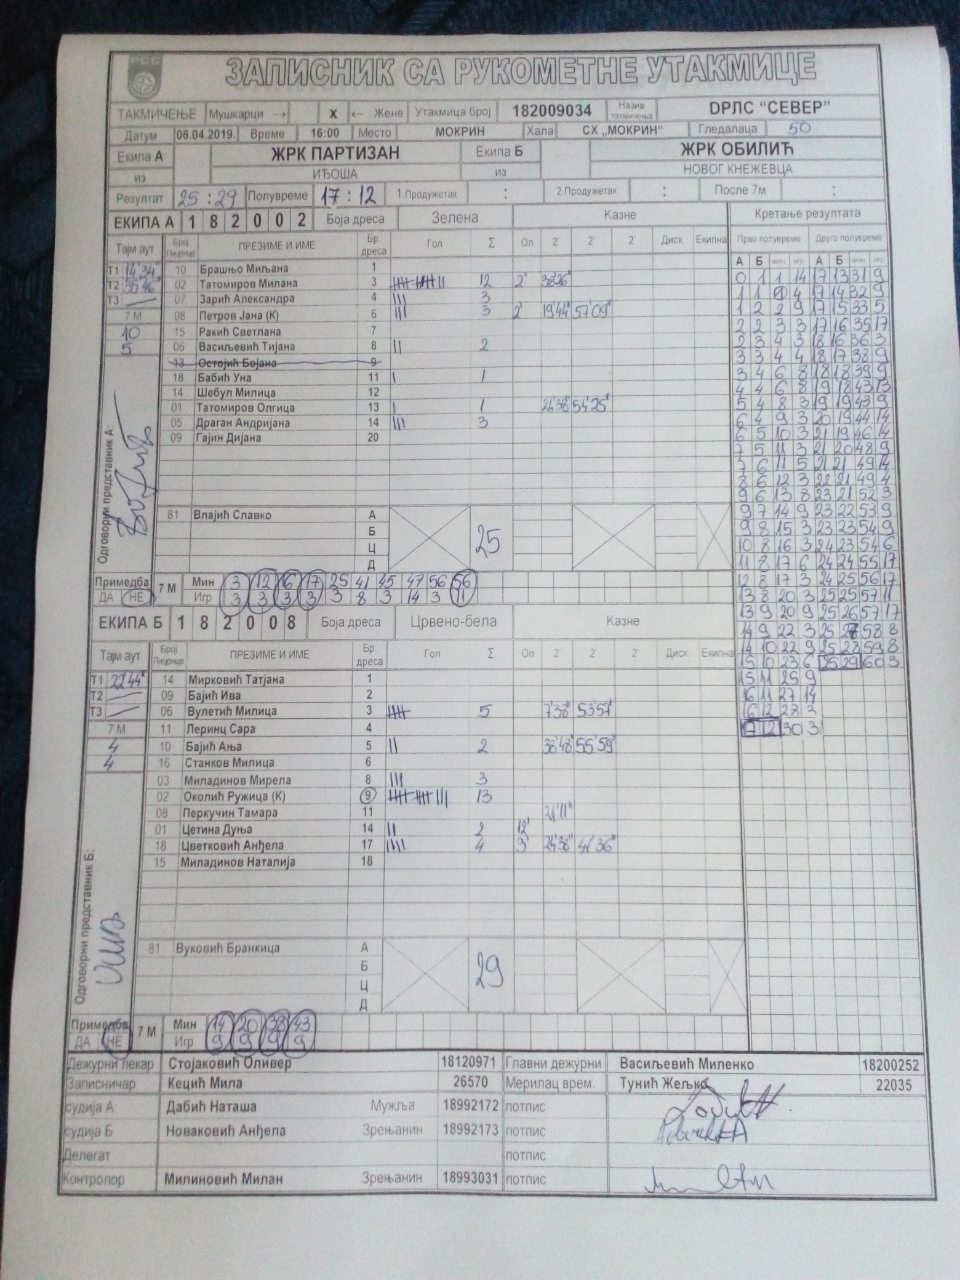 РСС
ЗАПИСНИК СА РУКОМЕТНЕ УТАКМИЦЕ
ТАКМИЧЕЊЕ Мушкарци → X ← Жене Утакмица број 182009034 Назив такмичења DРЛС “СЕВЕР”
Датум 06.04.2019. Време 16:00 Место МОКРИН Хала СХ „МОКРИН“ Гледалаца 50
Екипа А ЖРК ПАРТИЗАН Екипа Б ЖРК ОБИЛИЋ
из ИЂОША из НОВОГ КНЕЖЕВЦА
Резултат 25:29 Полувреме 17:12 1 Продужетак : 2 Продужетак : После 7м :
ЕКИПА А 1 8 2 0 0 2 Боја дреса Зелена Казне Кретање резултата
Тајм аут Број Лиценце ПРЕЗИМЕ И ИМЕ Бр. дреса Гол Σ Оп 2' 2' 2 Диск. Екипна Прво полувреме Друго полувреме
А Б мин игр А Б мин игр
Т1 10 Брашњо Миљана 1
Т2 02 Татомиров Милана 3 12 2'
Т3 07 Зарић Александра 4 3
7 М 08 Петров Јана (К) 6 3 2' 19'44" 57'09"
10 15 Ракић Светлана 7
5 06 Васиљевић Тијана 8 2
13 Остојић Бојана 9
18 Бабић Уна 11 1
14 Шебул Милица 12
01 Татомиров Олгица 13 1 24'38" 54'25"
05 Драган Андријана 14 3
09 Гајин Дијана 20
Одговорни представник А:
81 Влајић Славко А
Б 25
Ц
Д
Примедба 7 М Мин 3 12 16 17 25 41 45 47 56 56
ДА НЕ Игр 3 3 3 3 3 8 3 14 3 11
0 1 1 14 17 13 31 9
1 1 4 17 14 32 9
1 2 2 9 17 15 33 5
2 2 3 3 17 16 35 17
2 3 4 3 18 16 36 3
3 3 4 4 18 17 38 9
3 4 6 8 18 18 39 9
4 4 6 8 19 18 43 13
5 4 8 3 19 19 43 9
6 4 9 3 20 19 44 14
6 5 10 3 21 19 46 14
7 5 11 3 21 20 48 9
7 6 11 5 21 21 49 14
8 6 12 3 22 21 49 4
9 6 13 8 23 21 52 3
9 7 14 9 23 22 53 9
9 8 15 3 23 23 54 9
10 8 16 3 24 23 54 6
11 8 17 6 24 24 55 17
12 8 17 3 24 25 56 17
13 8 20 3 25 25 57 11
13 9 20 9 25 26 57 17
14 9 22 3 25 27 58 8
14 10 22 9 25 28 59 8
15 10 23 6 25 29 60 3
15 11 25 9
16 11 27 14
16 12 3
17 12 30 3
ЕКИПА Б 1 8 2 0 0 8 Боја дреса Црвено-бела Казне
Тајм аут Број Лиценце ПРЕЗИМЕ И ИМЕ Бр. дреса Гол Σ Оп 2' 2' 2 Диск. Екипна
Т1 22'44" 14 Мирковић Татјана 1
Т2 09 Бајић Ива 2
Т3 06 Вулетић Милица 3 5 7'38" 53'57"
7 М 11 Леринц Сара 4
4 10 Бајић Ања 5 2 38'48" 55'59"
4 16 Станков Милица 6
03 Миладинов Мирела 8 3
02 Околић Ружица (К) 9 13
08 Перкучин Тамара 11
01 Цетина Дуња 14 2 12'
18 Цветковић Анђела 17 4 3' 24'38" 41'36"
15 Миладинов Наталија 18
Одговорни представник Б:
81 Вуковић Бранкица А
Б 29
Ц
Д
Примедба 7 М Мин 14 20 38 43
ДА НЕ Игр 9 9 9 9
Дежурни лекар Стојаковић Оливер 18120971 Главни дежурни Васиљевић Миленко 18200252
Записничар Кецић Мила 26570 Мерилац врем. Тунић Жељко 22035
судија А Дабић Наташа Мужља 18992172 потпис
судија Б Новаковић Анђела Зрењанин 18992173 потпис
Делегат потпис
Контролор Милиновић Милан Зрењанин 18993031 потпис